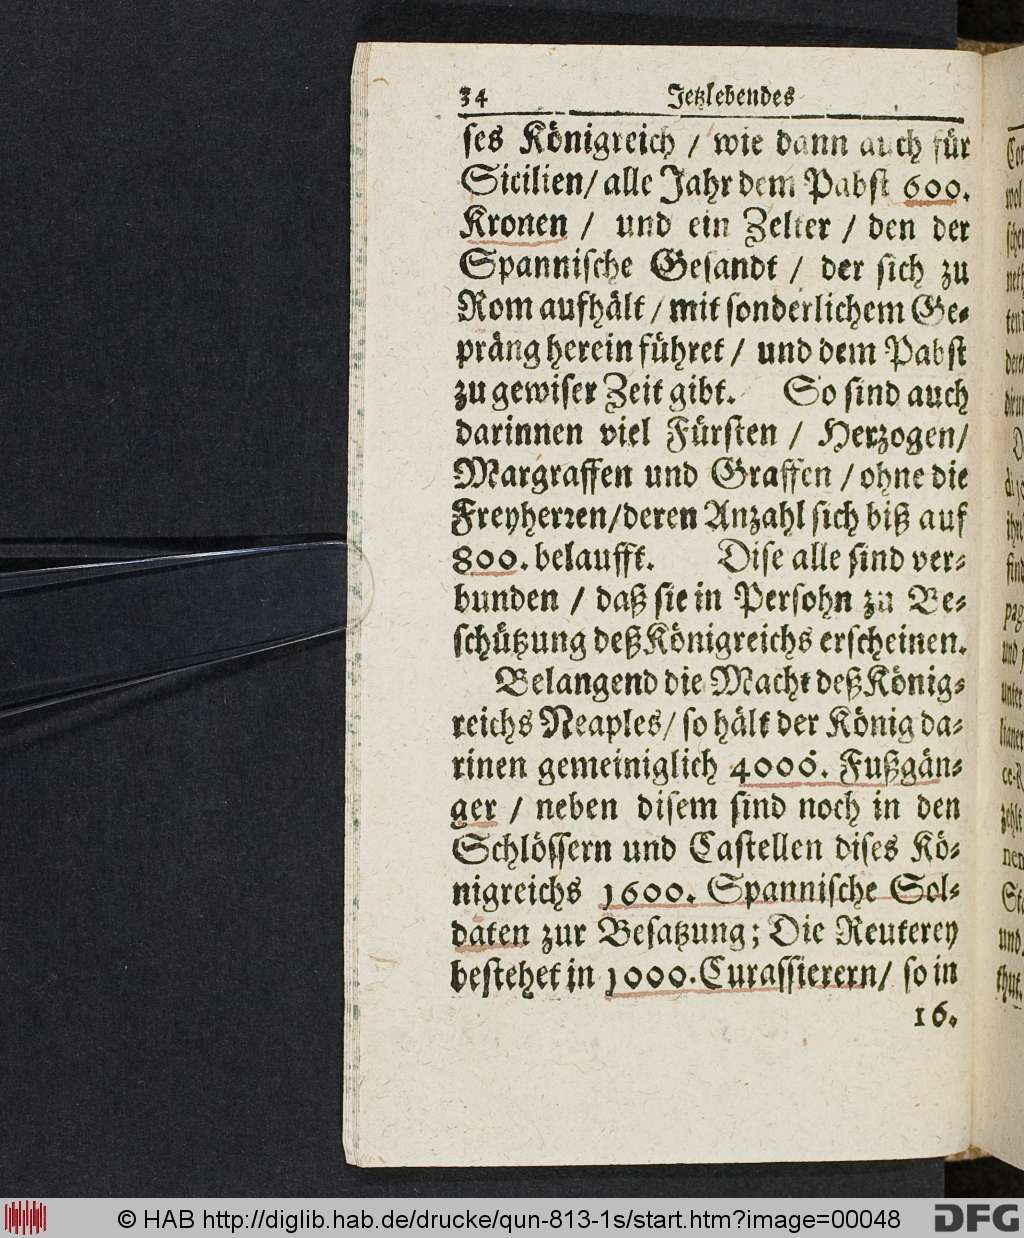 34 Jetzlebendes
ses Königreich / wie dann auch für
Sicilien/ alle Jahr dem Pabst 600.
Kronen / und ein Zelter / den der
Spannische Gesandt / der sich zu
Rom aufhält / mit sonderlichem Ge-
präng herein führet / und dem Pabst
zu gewiser Zeit gibt. So sind auch
darinnen viel Fürsten / Herzogen/
Margraffen und Graffen / ohne die
Freyherren/deren Anzahl sich biß auf
800. belaufft. Dise alle sind ver-
bunden / daß sie in Persohn zu Be-
schützung deß Königreichs erscheinen.
Belangend die Macht deß König-
reichs Neaples/ so hält der König da-
rinen gemeiniglich 4000. Fußgän-
ger / neben disem sind noch in den
Schlössern und Castellen dises Kö-
nigreichs 1600. Spannische Sol-
daten zur Besatzung; Die Reuterey
bestehet in 1000. Curassierern/ so in
16.
© HAB http://diglib.hab.de/drucke/qun-813-1s/start.htm?image=00048
DFG